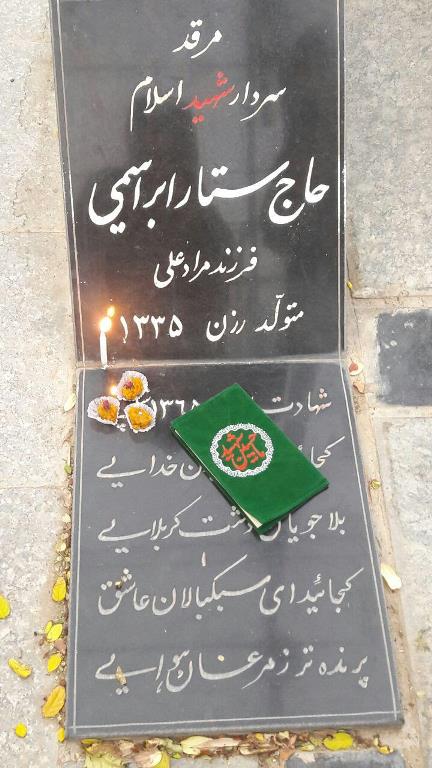 مرقد
سردار شهید اسلام
حاج ستار ابراهیمی
فرزند مرادعلی
متولد رزن ۱۳۳۵
شهادت ۱۳۶۵
خدایی
بلا جویان دشت کربلایی
کجائید ای سبکبالان عاشق
پرنده تر ز مرغان هوایی
یا حسین شهید